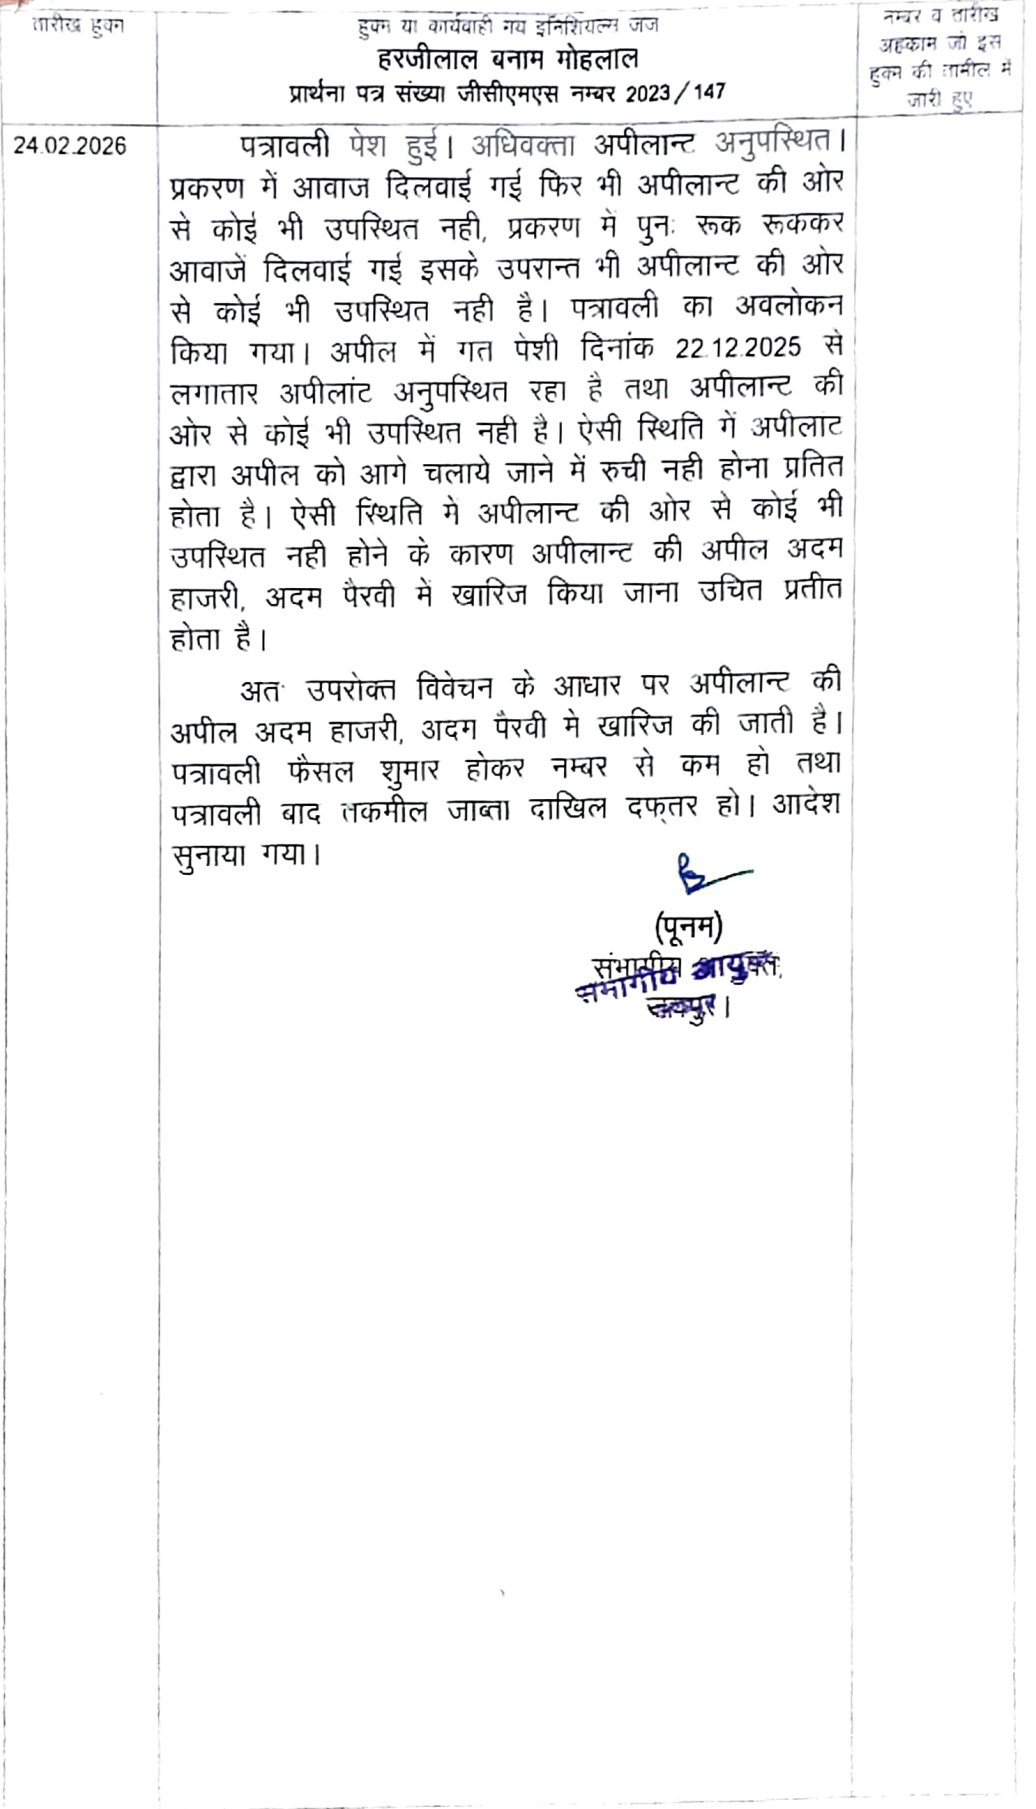 तारीख हुक्म
हुक्म या कार्यवाही मय इनिशियल्स जज
हरजीलाल बनाम मोहलाल
प्रार्थना पत्र संख्या जीसीएमएस नम्बर 2023/147
नम्बर व तारीख
अहकाम जो इस
हुक्म की तामील में
जारी हुए
24.02.2026
पत्रावली पेश हुई। अधिवक्ता अपीलान्ट अनुपस्थित।
प्रकरण में आवाज दिलवाई गई फिर भी अपीलान्ट की ओर
से कोई भी उपस्थित नही, प्रकरण में पुनः रूक रूककर
आवाजें दिलवाई गई इसके उपरान्त भी अपीलान्ट की ओर
से कोई भी उपस्थित नही है। पत्रावली का अवलोकन
किया गया। अपील में गत पेशी दिनांक 22.12.2025 से
लगातार अपीलांट अनुपस्थित रहा है तथा अपीलान्ट की
ओर से कोई भी उपस्थित नही है। ऐसी स्थिति में अपीलाट
द्वारा अपील को आगे चलाये जाने में रुची नही होना प्रतित
होता है। ऐसी स्थिति में अपीलान्ट की ओर से कोई भी
उपस्थित नही होने के कारण अपीलान्ट की अपील अदम
हाजरी, अदम पैरवी में खारिज किया जाना उचित प्रतीत
होता है।
अतः उपरोक्त विवेचन के आधार पर अपीलान्ट की
अपील अदम हाजरी, अदम पैरवी मे खारिज की जाती है।
पत्रावली फैसल शुमार होकर नम्बर से कम हो तथा
पत्रावली बाद तकमील जाब्ता दाखिल दफ्तर हो। आदेश
सुनाया गया।
(पूनम)
संभागीय आयुक्त,
संभागीय आयुक्त
जयपुर।